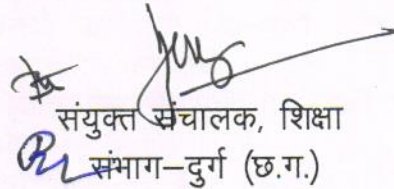 संयुक्त संचालक, शिक्षा
संभाग–दुर्ग (छ.ग.)